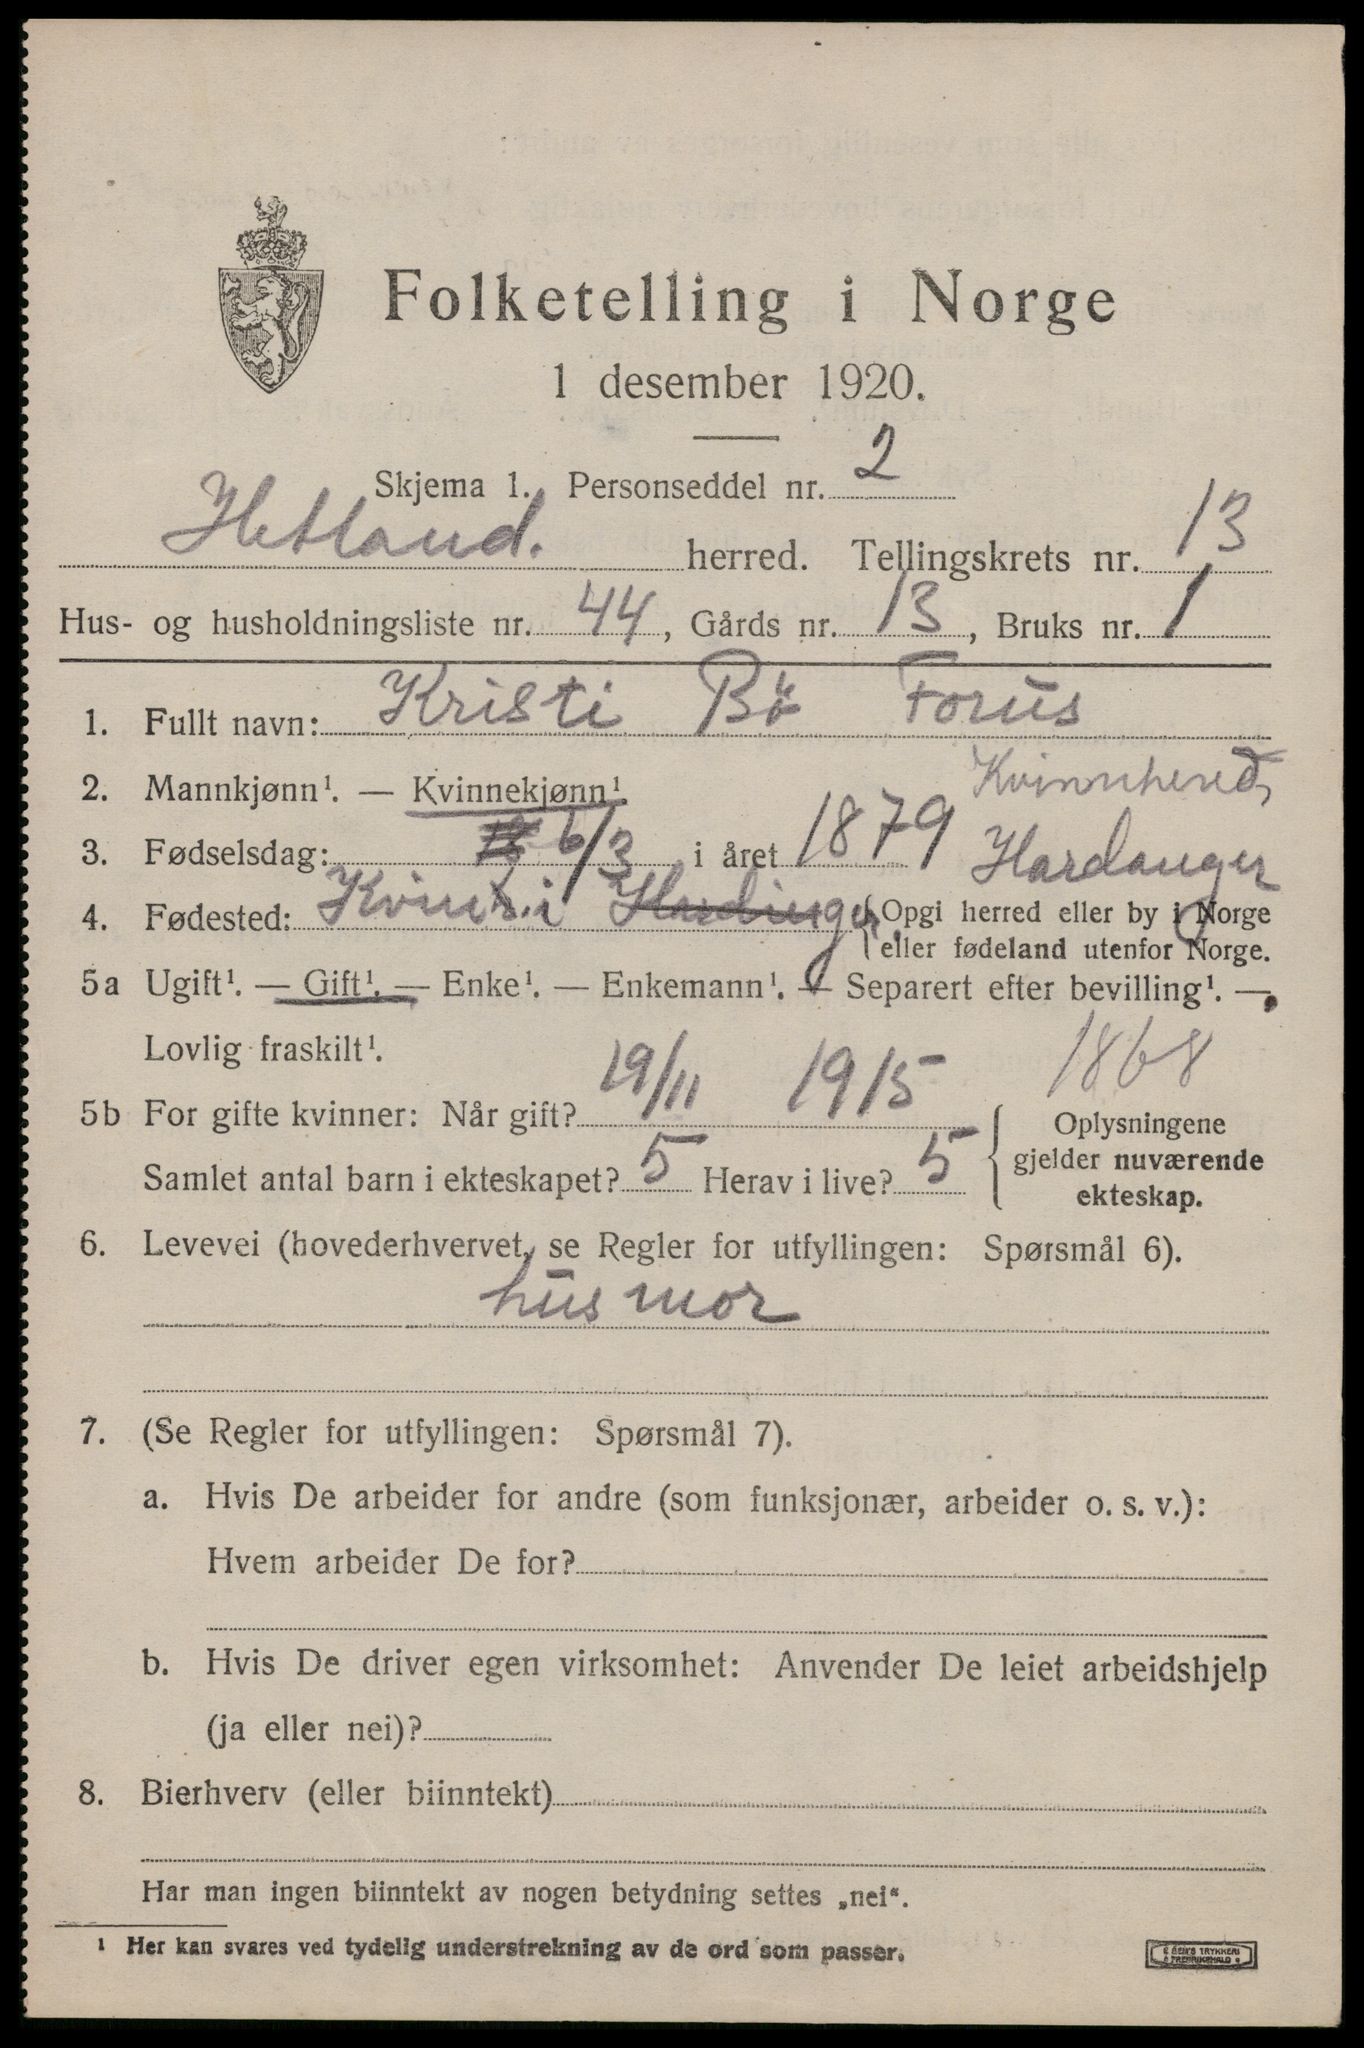 Folketelling i Norge
1 desember 1920.
Skjema 1. Personseddel nr. 2
Hetland. herred. Tellingskrets nr. 13
Hus- og husholdningsliste nr. 44, Gårds nr. 13, Bruks nr. 1
1. Fullt navn: Kristi Bö Forus
2. Mannkjønn¹. — Kvinnekjønn¹
Kvinnhered,
3. Fødselsdag: 6/3 i året 1879
Hardanger
4. Fødested: i Hardinger {Opgi herred eller by i Norge
eller fødeland utenfor Norge.
5a Ugift¹. — Gift¹. — Enke¹. — Enkemann¹. — Separert efter bevilling¹. —
Lovlig fraskilt¹.
1868
5b For gifte kvinner: Når gift? 19/11 1915
Samlet antal barn i ekteskapet? 5 Herav i live? 5
{ Oplysningene
gjelder nuværende
ekteskap.
6. Levevei (hovederhvervet, se Regler for utfyllingen: Spørsmål 6).
husmor
7. (Se Regler for utfyllingen: Spørsmål 7).
a. Hvis De arbeider for andre (som funksjonær, arbeider o. s. v.):
Hvem arbeider De for?
b. Hvis De driver egen virksomhet: Anvender De leiet arbeidshjelp
(ja eller nei)?
8. Bierhverv (eller biinntekt)
Har man ingen biinntekt av nogen betydning settes „nei“.
¹ Her kan svares ved tydelig understrekning av de ord som passer.